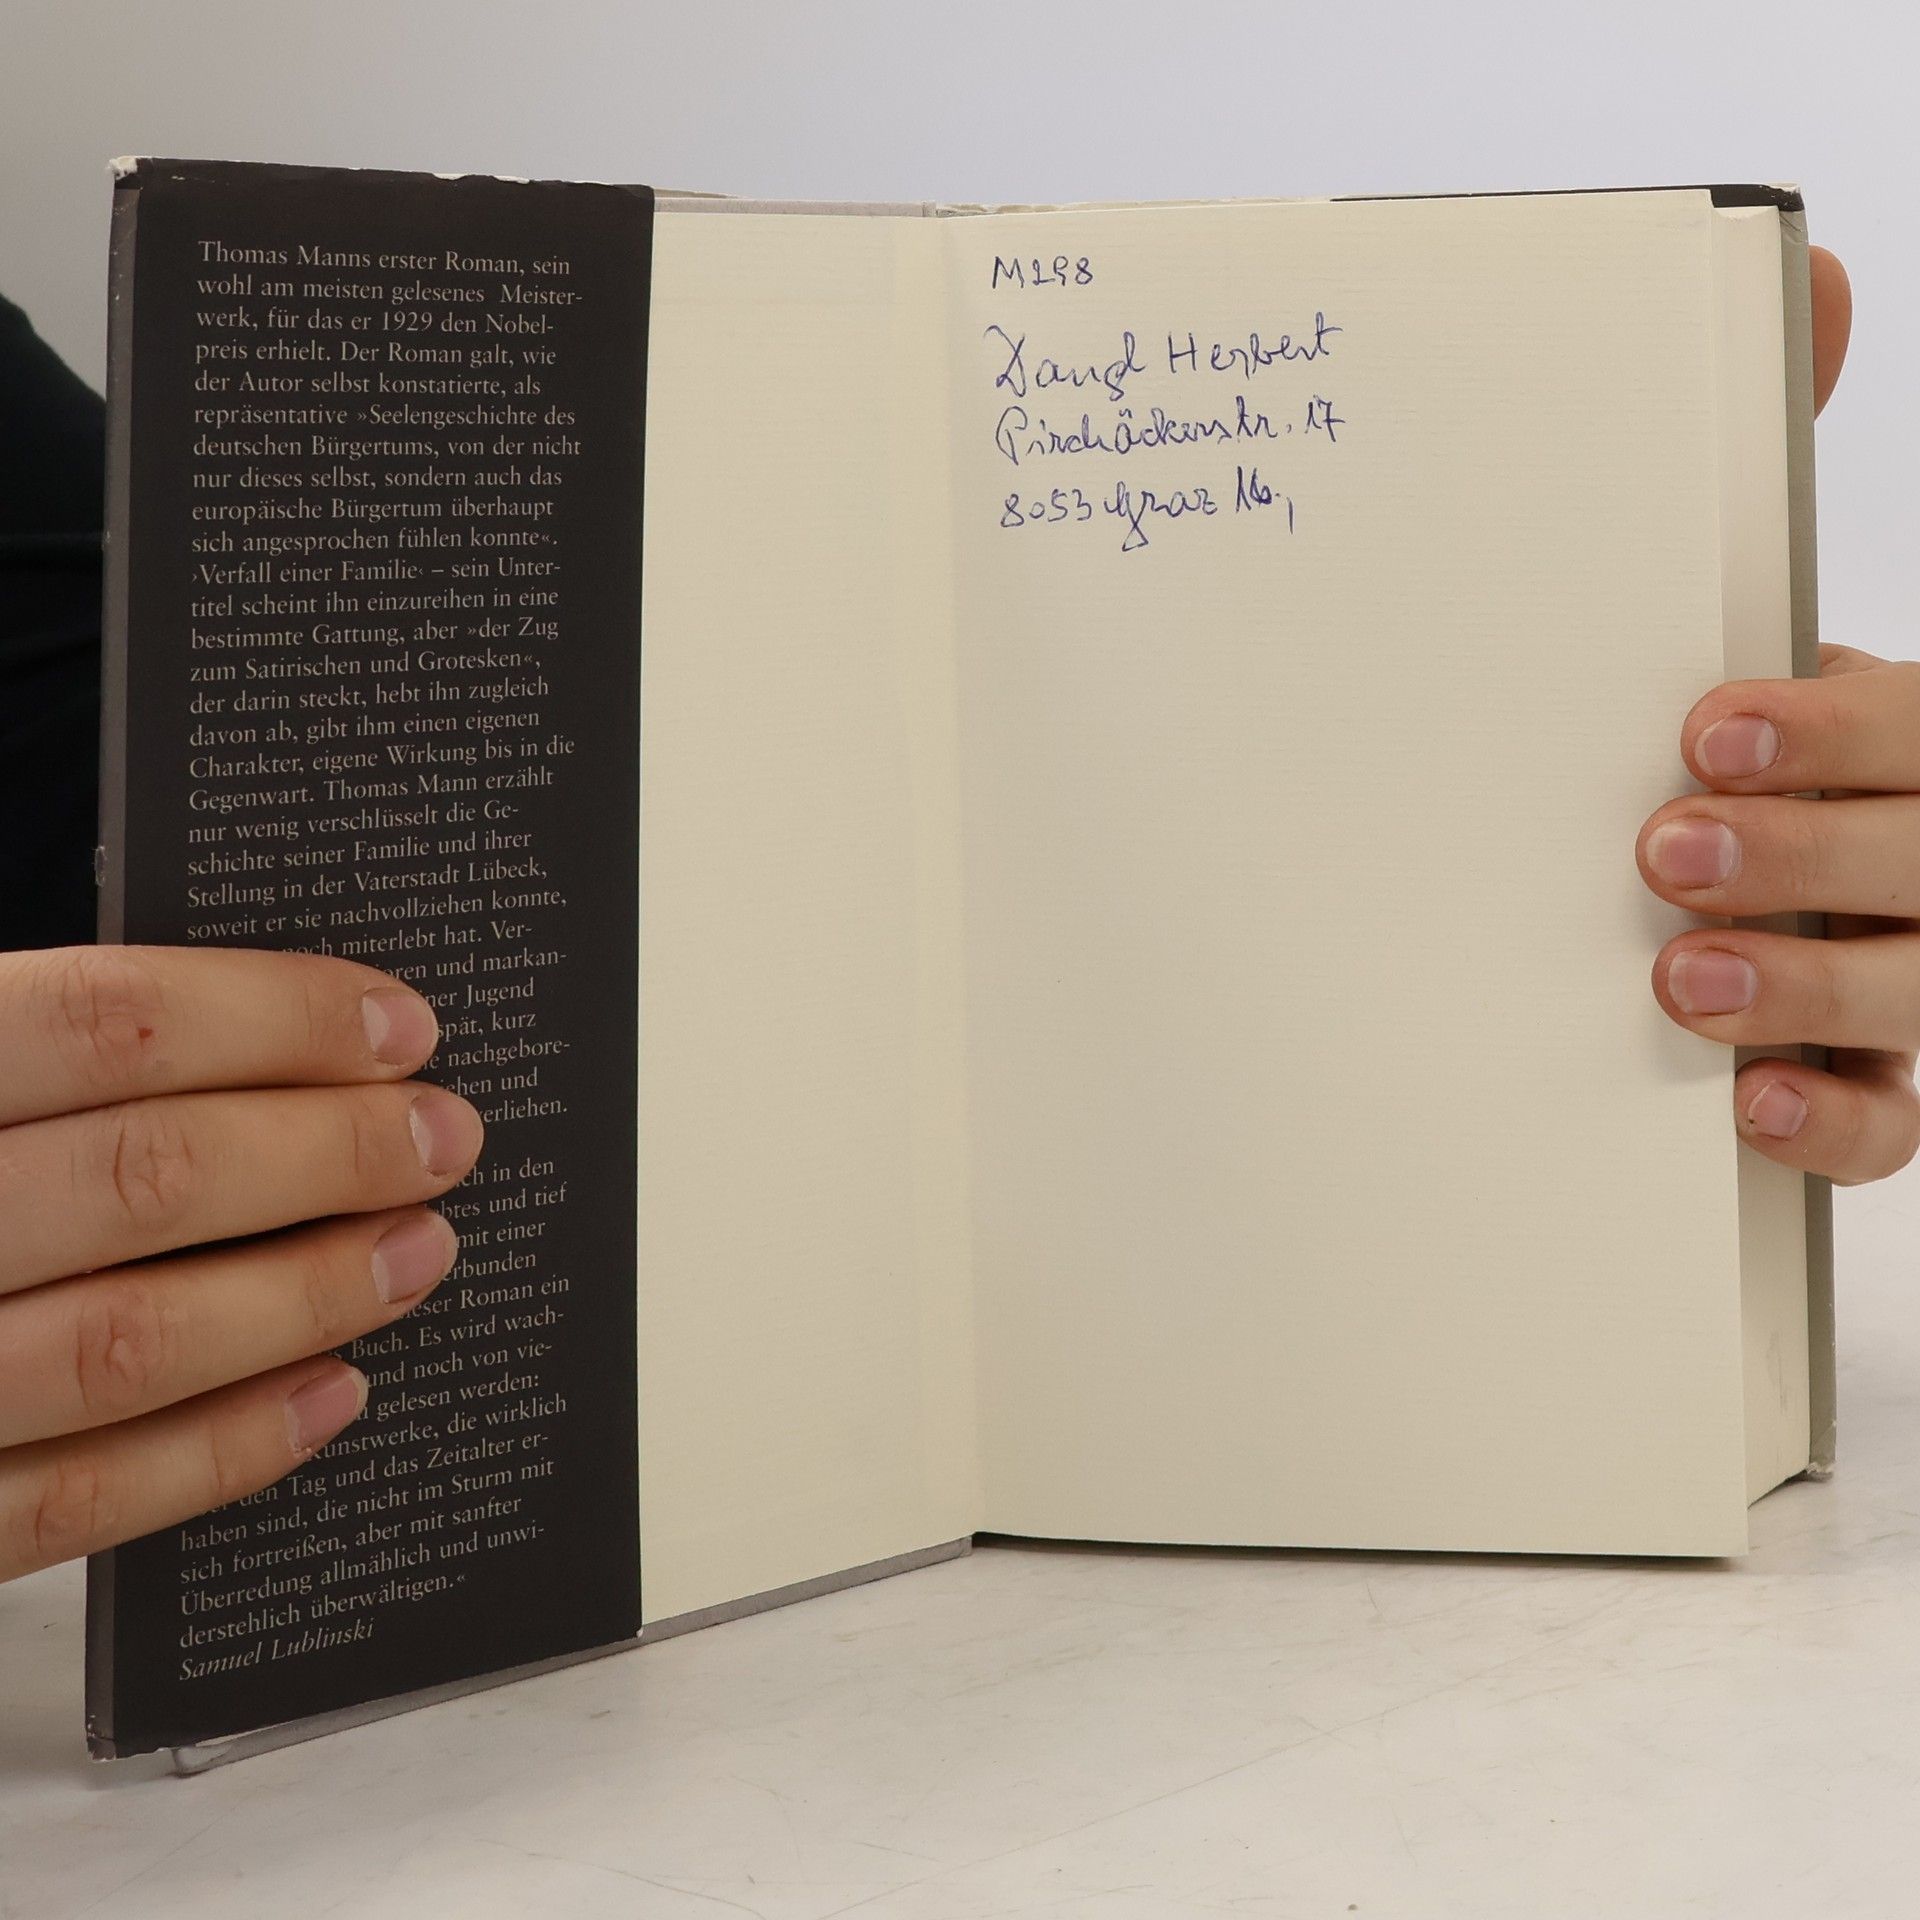 Thomas Manns erster Roman, sein
wohl am meisten gelesenes Meister-
werk, für das er 1929 den Nobel-
preis erhielt. Der Roman galt, wie
der Autor selbst konstatierte, als
repräsentative »Seelengeschichte des
deutschen Bürgertums, von der nicht
nur dieses selbst, sondern auch das
europäische Bürgertum überhaupt
sich angesprochen fühlen konnte«.
›Verfall einer Familie‹ – sein Unter-
titel scheint ihn einzureihen in eine
bestimmte Gattung, aber »der Zug
zum Satirischen und Grotesken«,
der darin steckt, hebt ihn zugleich
davon ab, gibt ihm einen eigenen
Charakter, eigene Wirkung bis in die
Gegenwart. Thomas Mann erzählt
nur wenig verschlüsselt die Ge-
schichte seiner Familie und ihrer
Stellung in der Vaterstadt Lübeck,
soweit er sie nachvollziehen konnte,
noch miterlebt hat. Ver-
und markan-
Jugend
spät, kurz
nachgebore-
und
verliehen.
in den
und tief
mit einer
Roman ein
Buch. Es wird wach-
und noch von vie-
gelesen werden:
die wirklich
den Tag und das Zeitalter er-
haben sind, die nicht im Sturm mit
sich fortreißen, aber mit sanfter
Überredung allmählich und unwi-
derstehlich überwältigen.«
Samuel Lublinski
M298
Dangl Herbert
Pirchäckerstr. 17
8053 Graz